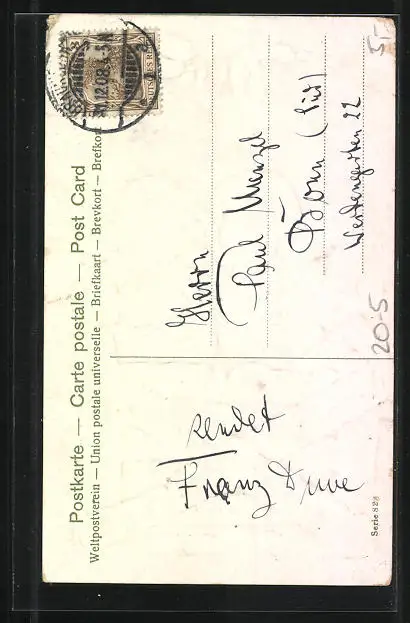 Postkarte — Carte postale — Post Card
Weltpostverein — Union postale universelle — Briefkaart — Brevkort — Brefkort
12.08
Herrn
Paul Menzel
Bonn (Süd)
22
sendet
Franz Duwe
Serie 828
20-5
5,-